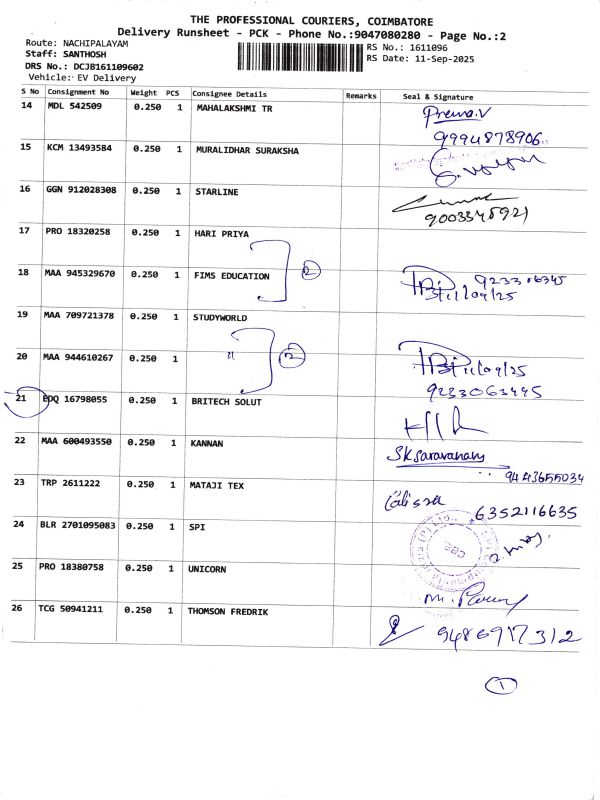 THE PROFESSIONAL COURIERS, COIMBATORE
Delivery Runsheet - PCK - Phone No.:9047080280 - Page No.:2
Route: NACHIPALAYAM
Staff: SANTHOSH
DRS No.: DCJB161109602
Vehicle: EV Delivery
RS No.: 1611096
RS Date: 11-Sep-2025
S No Consignment No Weight PCS Consignee Details Remarks Seal & Signature
14 MDL 542509 0.250 1 MAHALAKSHMI TR Prema.V
9994878906
15 KCM 13493584 0.250 1 MURALIDHAR SURAKSHA
16 GGN 912028308 0.250 1 STARLINE
9003345921
17 PRO 18320258 0.250 1 HARI PRIYA
18 MAA 945329670 0.250 1 FIMS EDUCATION 2 923306345
11/09/25
19 MAA 709721378 0.250 1 STUDYWORLD
20 MAA 944610267 0.250 1 " 2 11/09/25
9233063445
21 EDQ 16798055 0.250 1 BRITECH SOLUT
22 MAA 600493550 0.250 1 KANNAN SKSaravanan
9443655034
23 TRP 2611222 0.250 1 MATAJI TEX
6352116635
24 BLR 2701095083 0.250 1 SPI
CBE
25 PRO 18380758 0.250 1 UNICORN
26 TCG 50941211 0.250 1 THOMSON FREDRIK
9486917312
1